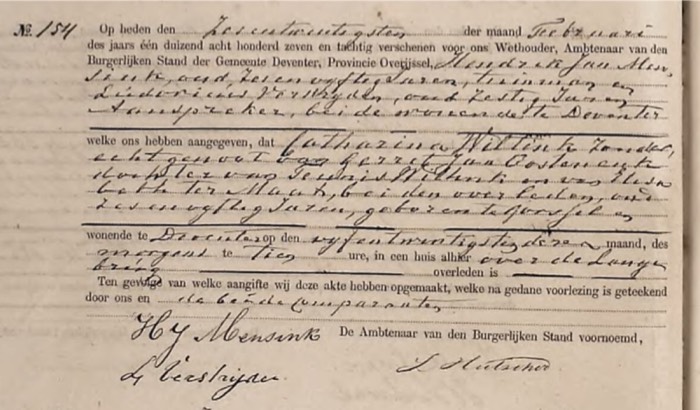 No. 154 Op heden den Zesentwintigsten der maand Februari
des jaars één duizend acht honderd zeven en tachtig verschenen voor ons Wethouder, Ambtenaar van den
Burgerlijken Stand der Gemeente Deventer, Provincie Overijssel, Hendrik Jan Men-
sink, oud zesenvyftig Jaren, tuinman en
Ludovicus Verstryden, oud zestig Jaren
Aanspreker, beide wonende te Deventer
welke ons hebben aangegeven, dat Catharina Wiltink zonder,
echtgenoot van Gerret Jan
dochter van Teunis Wiltink en van Elisa
beth ter Maat, beiden overleden, oud
zesenvyftig Jaren, geboren te Gorssel en
wonende te Deventer op den vyfentwintigsten dezer maand, des
morgens te tien ure, in een huis alhier over de Lange
brug overleden is
Ten gevolge van welke aangifte wij deze akte hebben opgemaakt, welke na gedane voorlezing is geteekend
door ons en de beide Comparanten
HJ Mensink De Ambtenaar van den Burgerlijken Stand voornoemd,
L Verstryden.